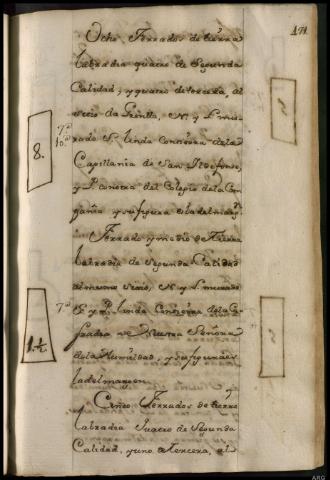 471
Ocho Ferrados de tierra
labradia quatro de Segunda
Calidad; y quatro de tercera, al
sitio da N. y P. mu-
7ª
10ª
8.
rado S. linda con tierra de la
Capillania de San Ildefonso,
y P. con otra del Colegio de la Com
pañia y su figura es la del marg.n
Ferrado y medio de tierra
labradia de Segunda Calidad
al mismo sitio, N. y P. murado
7ª
1.½
S. y P. linda con tierra de la Co
fradia de Nuestra Señora
de la Humildad, y su figura es
la del margen.
Cinco Ferrados de tierra
labradia quatro de Segunda
Calidad, y uno de tercera, al